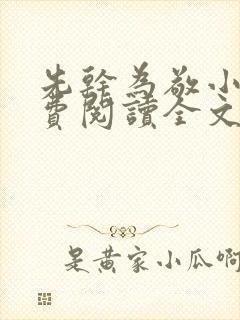 先幹為敬小
費閱讀全文
是黃家小瓜啊